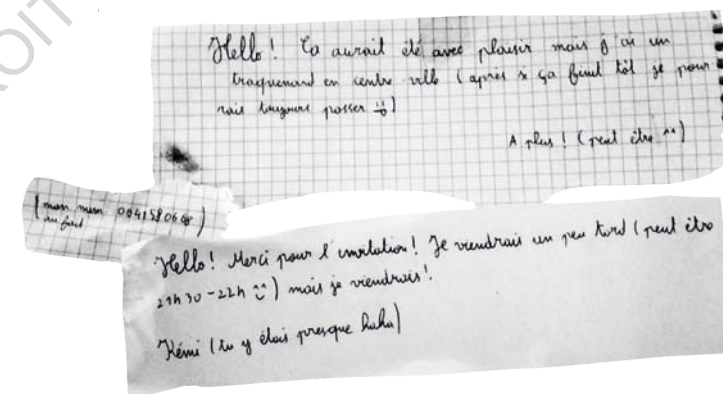 ROIT
Hello ! Ca aurait été avec plaisir mais j'ai un
traquenard en centre ville (après si ça finit tôt je pour-
rais toujours passer
A plus ! (peut être ^^)
(mon num
au fait
Hello ! Merci pour l'invitation ! Je viendrais un peu tard (peut être
21h30-22h ^^) mais je viendrais !
Rémi (tu y étais presque haha)